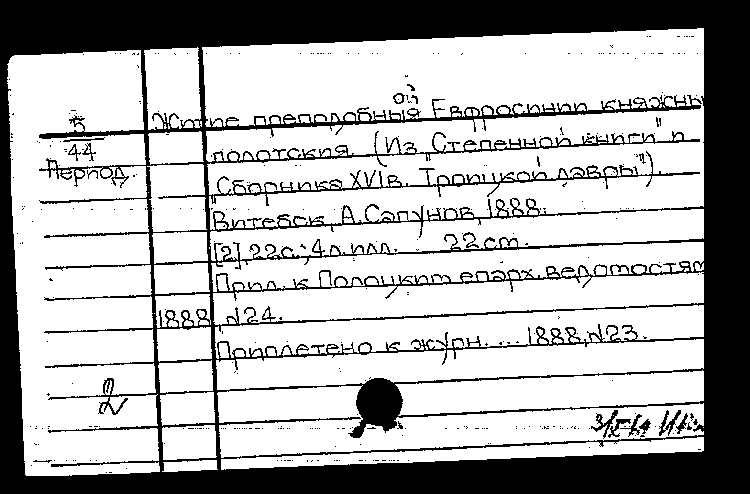 5
44
Период.
Житие преподобныя ой Евфросинии княжны
полотския (Из „Степенной книги" и
„Сборника XVI в. Троицкой лавры").
Витебск, А. Сапунов, 1888.
[2], 22 с.; 4 л. илл. 22 cm.
Прил. к Полоцким епарх. ведомостям
1888, №24.
Приплетено к журн. ... 1888, №23.
2